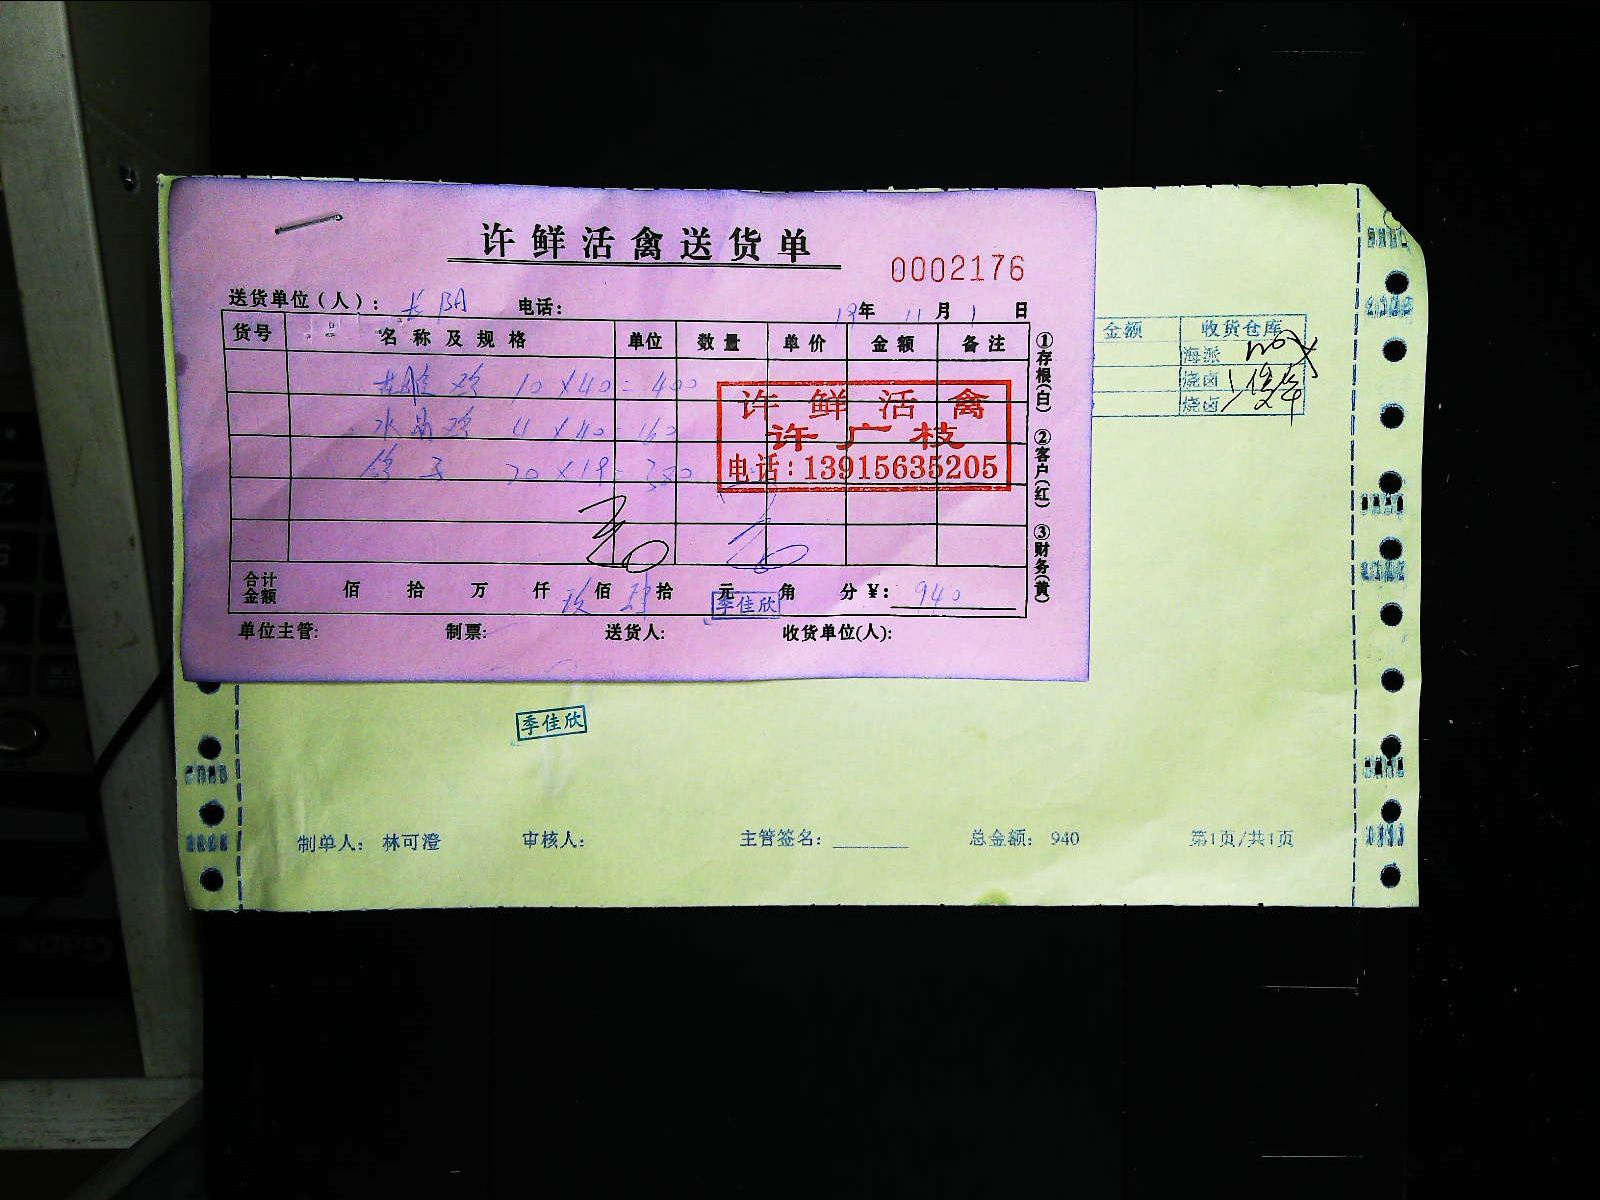 许鲜活禽送货单
0002176
送货单位(人): 长阳 电话: 19年 11月 1日
货号 名称及规格 单位 数量 单价 金额 备注
鸡 10×40=400
水晶鸡 4×40=160
鸽子 20×19=380
许鲜活禽
许广枝
电话:13915635205
①存根(白) ②客户(红) ③财务(黄)
合计金额 佰 拾 万 仟 玖佰 肆拾 元 角 分 ¥: 940
季佳欣
单位主管: 制票: 送货人: 收货单位(人):
金额 收货仓库
海派
烧卤
烧卤
季佳欣
制单人: 林可澄 审核人: 主管签名: 总金额: 940 第1页/共1页